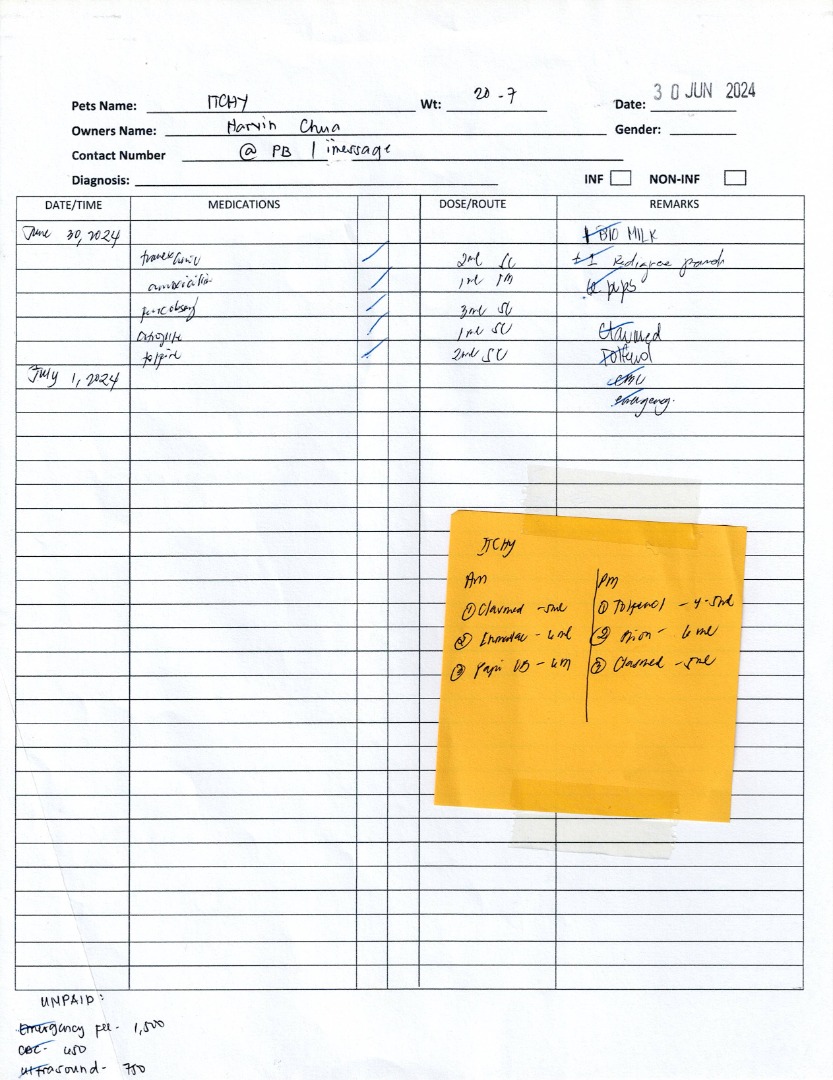 30 JUN 2024
Pets Name: ITCHY Wt: 20-7 Date:
Owners Name: Marvin Chua Gender:
Contact Number @ PB | imessage
Diagnosis: INF NON-INF
DATE/TIME MEDICATIONS DOSE/ROUTE REMARKS
June 30, 2024 1 BIO MILK
2ml SC +1 Pedigree pouch
amoxicillin 1ml IM pups
3ml SC
1ml SC Clavmed
2ml SC Tolfenol
July 1, 2024 CBC
emergency.
ITCHY
Am Pm
① Clavmed - 5ml ① Tolfenol - 4-5ml
② - 6ml ② - 6ml
③ Papi - 6ml ③ Clavmed - 5ml
UNPAID:
Emergency fee - 1,500
CBC - 450
ultrasound - 750